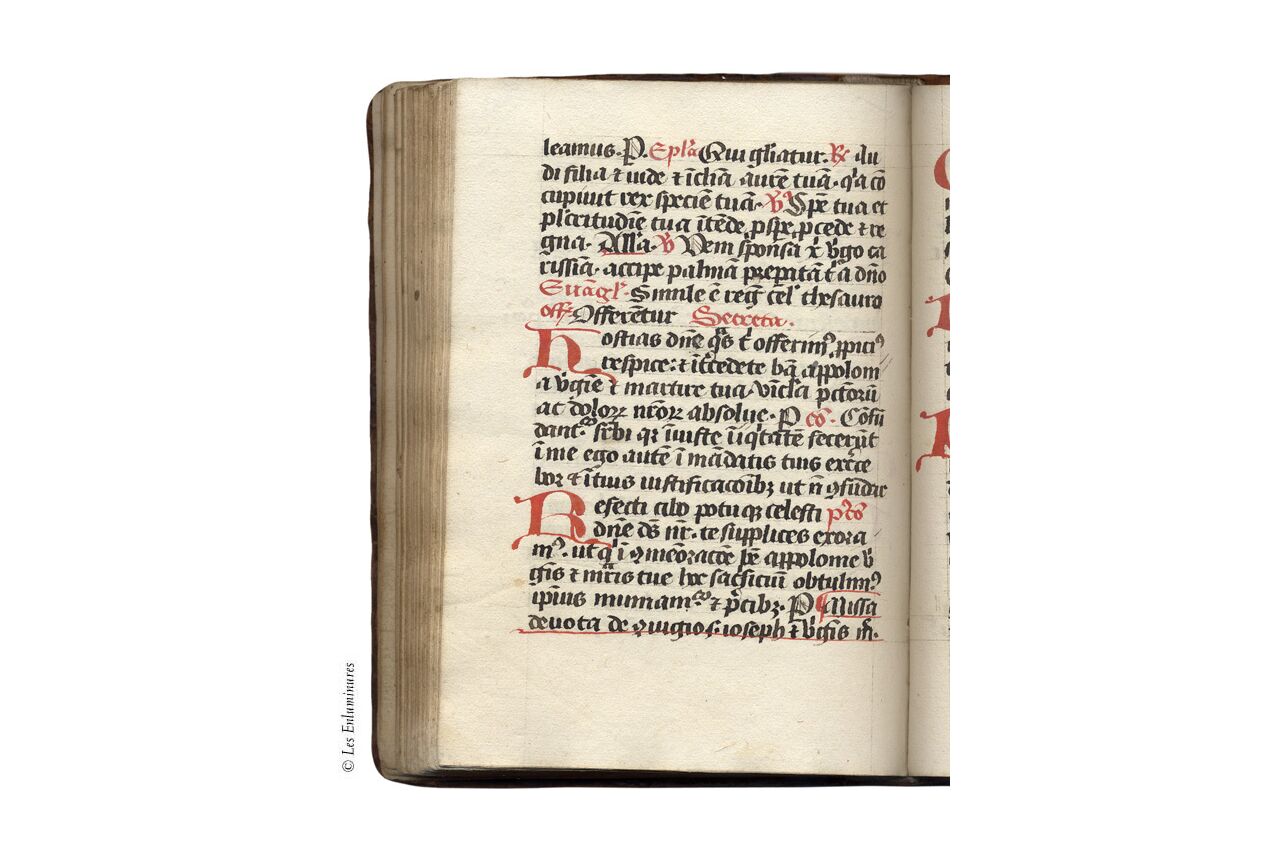 leamus. P. Ep̄la Qui gl̄iatur. R̄ Au
di filia ⁊ uide ⁊ īclīa aurē tuā. qa cō
cupiuit rex speciē tuā. V̄ Spē tua et
pl̄critudīe tua ītēde, ꝓspe, ꝓcede ⁊ re
gna. All̓a. V̄ Veni spōnsa x̄ v̓go ca
rissīa. accipe palmā preparatā t̓ a dn̄o
Euāgl̓. Simile ē regn̄ cel̓ thesauro
off. Offerētur Secreta.
Hostias dn̄e qs̄ t̓ offerimꝰ ꝓpiciꝰ
respice: ⁊ īt̓cedēte bt̄a appolom
a v̓gīe ⁊ martire tua. vīcl̓a pctōrū
ac dolorꝝ nr̄orꝝ absolue. P cō. Cōfū
dant̓ suꝑbi qꝛ īiuste īiqtatē fecerūt
ī me ego autē ī mādatis tuis exerce
bor ⁊ ī tuis iustificacōibꝫ ut nō ꝯfūdar
Refecti cibo potuqꝫ celesti p̓cō
dn̄e ds̄ nr̄. te supplices exora
mꝰ. ut q̓ ī ꝯmēoracōe bē appolome v̓
gīs ⁊ mr̄is tue hec sac̓ficiū obtulimꝰ
ipīus muniam̓ ⁊ p̓cibꝫ. P Missa
deuota de s. ioseph ⁊ v̓gīs m̄.
© Les Enluminures